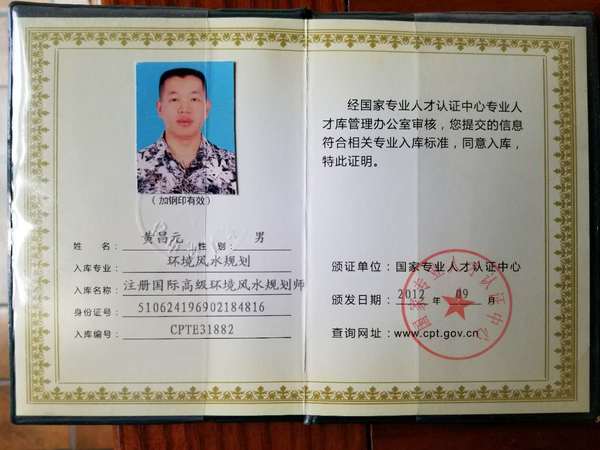 (加钢印有效)
姓 名: 黄昌元 性 别: 男
入库专业: 环境风水规划
入库名称: 注册国际高级环境风水规划师
身份证号: 510624196902184816
入库编号: CPTE31882
经国家专业人才认证中心专业人
才库管理办公室审核，您提交的信息
符合相关专业入库标准，同意入库，
特此证明。
颁证单位: 国家专业人才认证中心
颁发日期: 2012 年 09 月
查询网址: www.cpt.gov.cn
国家专业人才认证中心